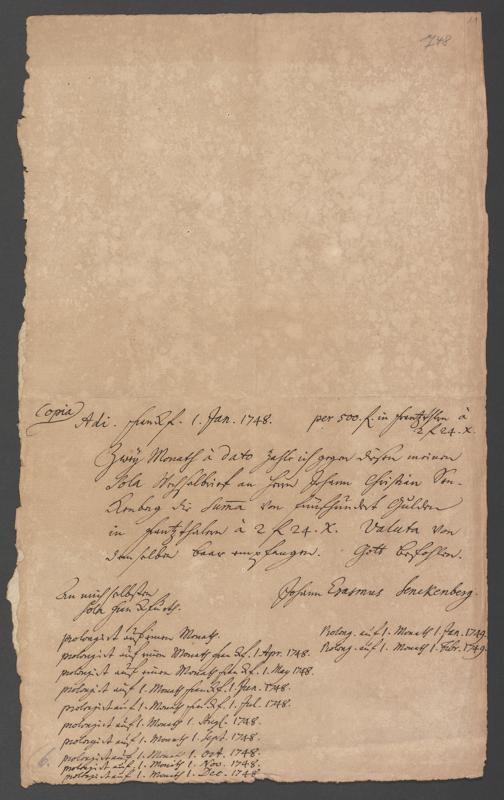 11
748
Copia
Adi. Franckf. 1. Jan. 1748. per 500. f. in Frantzthlrn à
2 f 24. X.
Zwey Monath à dato zahle ich gegen diesen meinen
Sola Wechselbrief an Herrn Johann Christian Sen-
kenberg die Summa von fünfhundert Gulden
in Frantzthalern à 2 f 24. X. Valuta von
demselben baar empfangen. Gott befohlen.
An mich selbsten
Sola Franckfurth.
Johann Erasmus Senckenberg.
prolongirt auf einen Monath.
prolongirt auf einen Monath Franckf. 1. Apr. 1748.
prolongirt auf einen Monath Franckf. 1. May 1748.
prolongirt auf 1. Monath Franckf. 1. Jun. 1748.
prolongirt auf 1. Monath Franckf. 1. Jul. 1748.
prolongirt auf 1. Monath 1. Augl. 1748.
prolongirt auf 1. Monath 1. Sept. 1748.
prolongirt auf 1. Monath 1. Oct. 1748.
prolongirt auf 1. Monath 1. Nov. 1748.
prolongirt auf 1. Monath 1. Dec. 1748.
Prolong. auf 1. Monath 1. Jan. 1749.
Prolong. auf 1. Monath 1. Febr. 1749.
6.